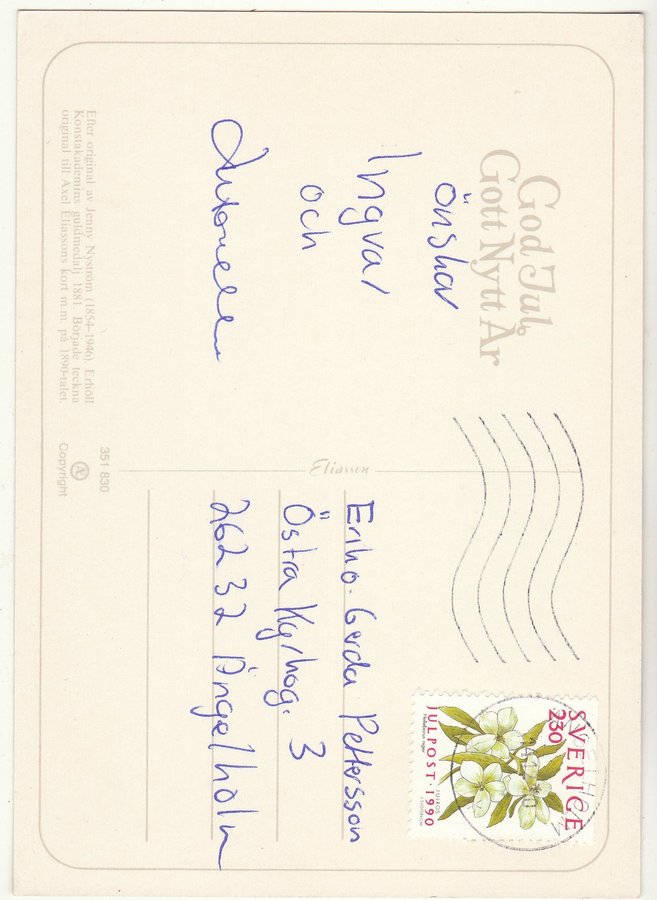 God Jul
Gott Nytt År
önskar
Ingvar
och
Efter original av Jenny Nyström (1854-1946). Erhöll
Konstakademins guldmedalj 1881. Började teckna
original till Axel Eliassons kort m.m. på 1890-talet.
351 830
Æ
Copyright
Eliasson
SVERIGE
230
JULPOST · 1990
Gerda Pettersson
Östra Kyrkog. 3
26232 Ängelholm